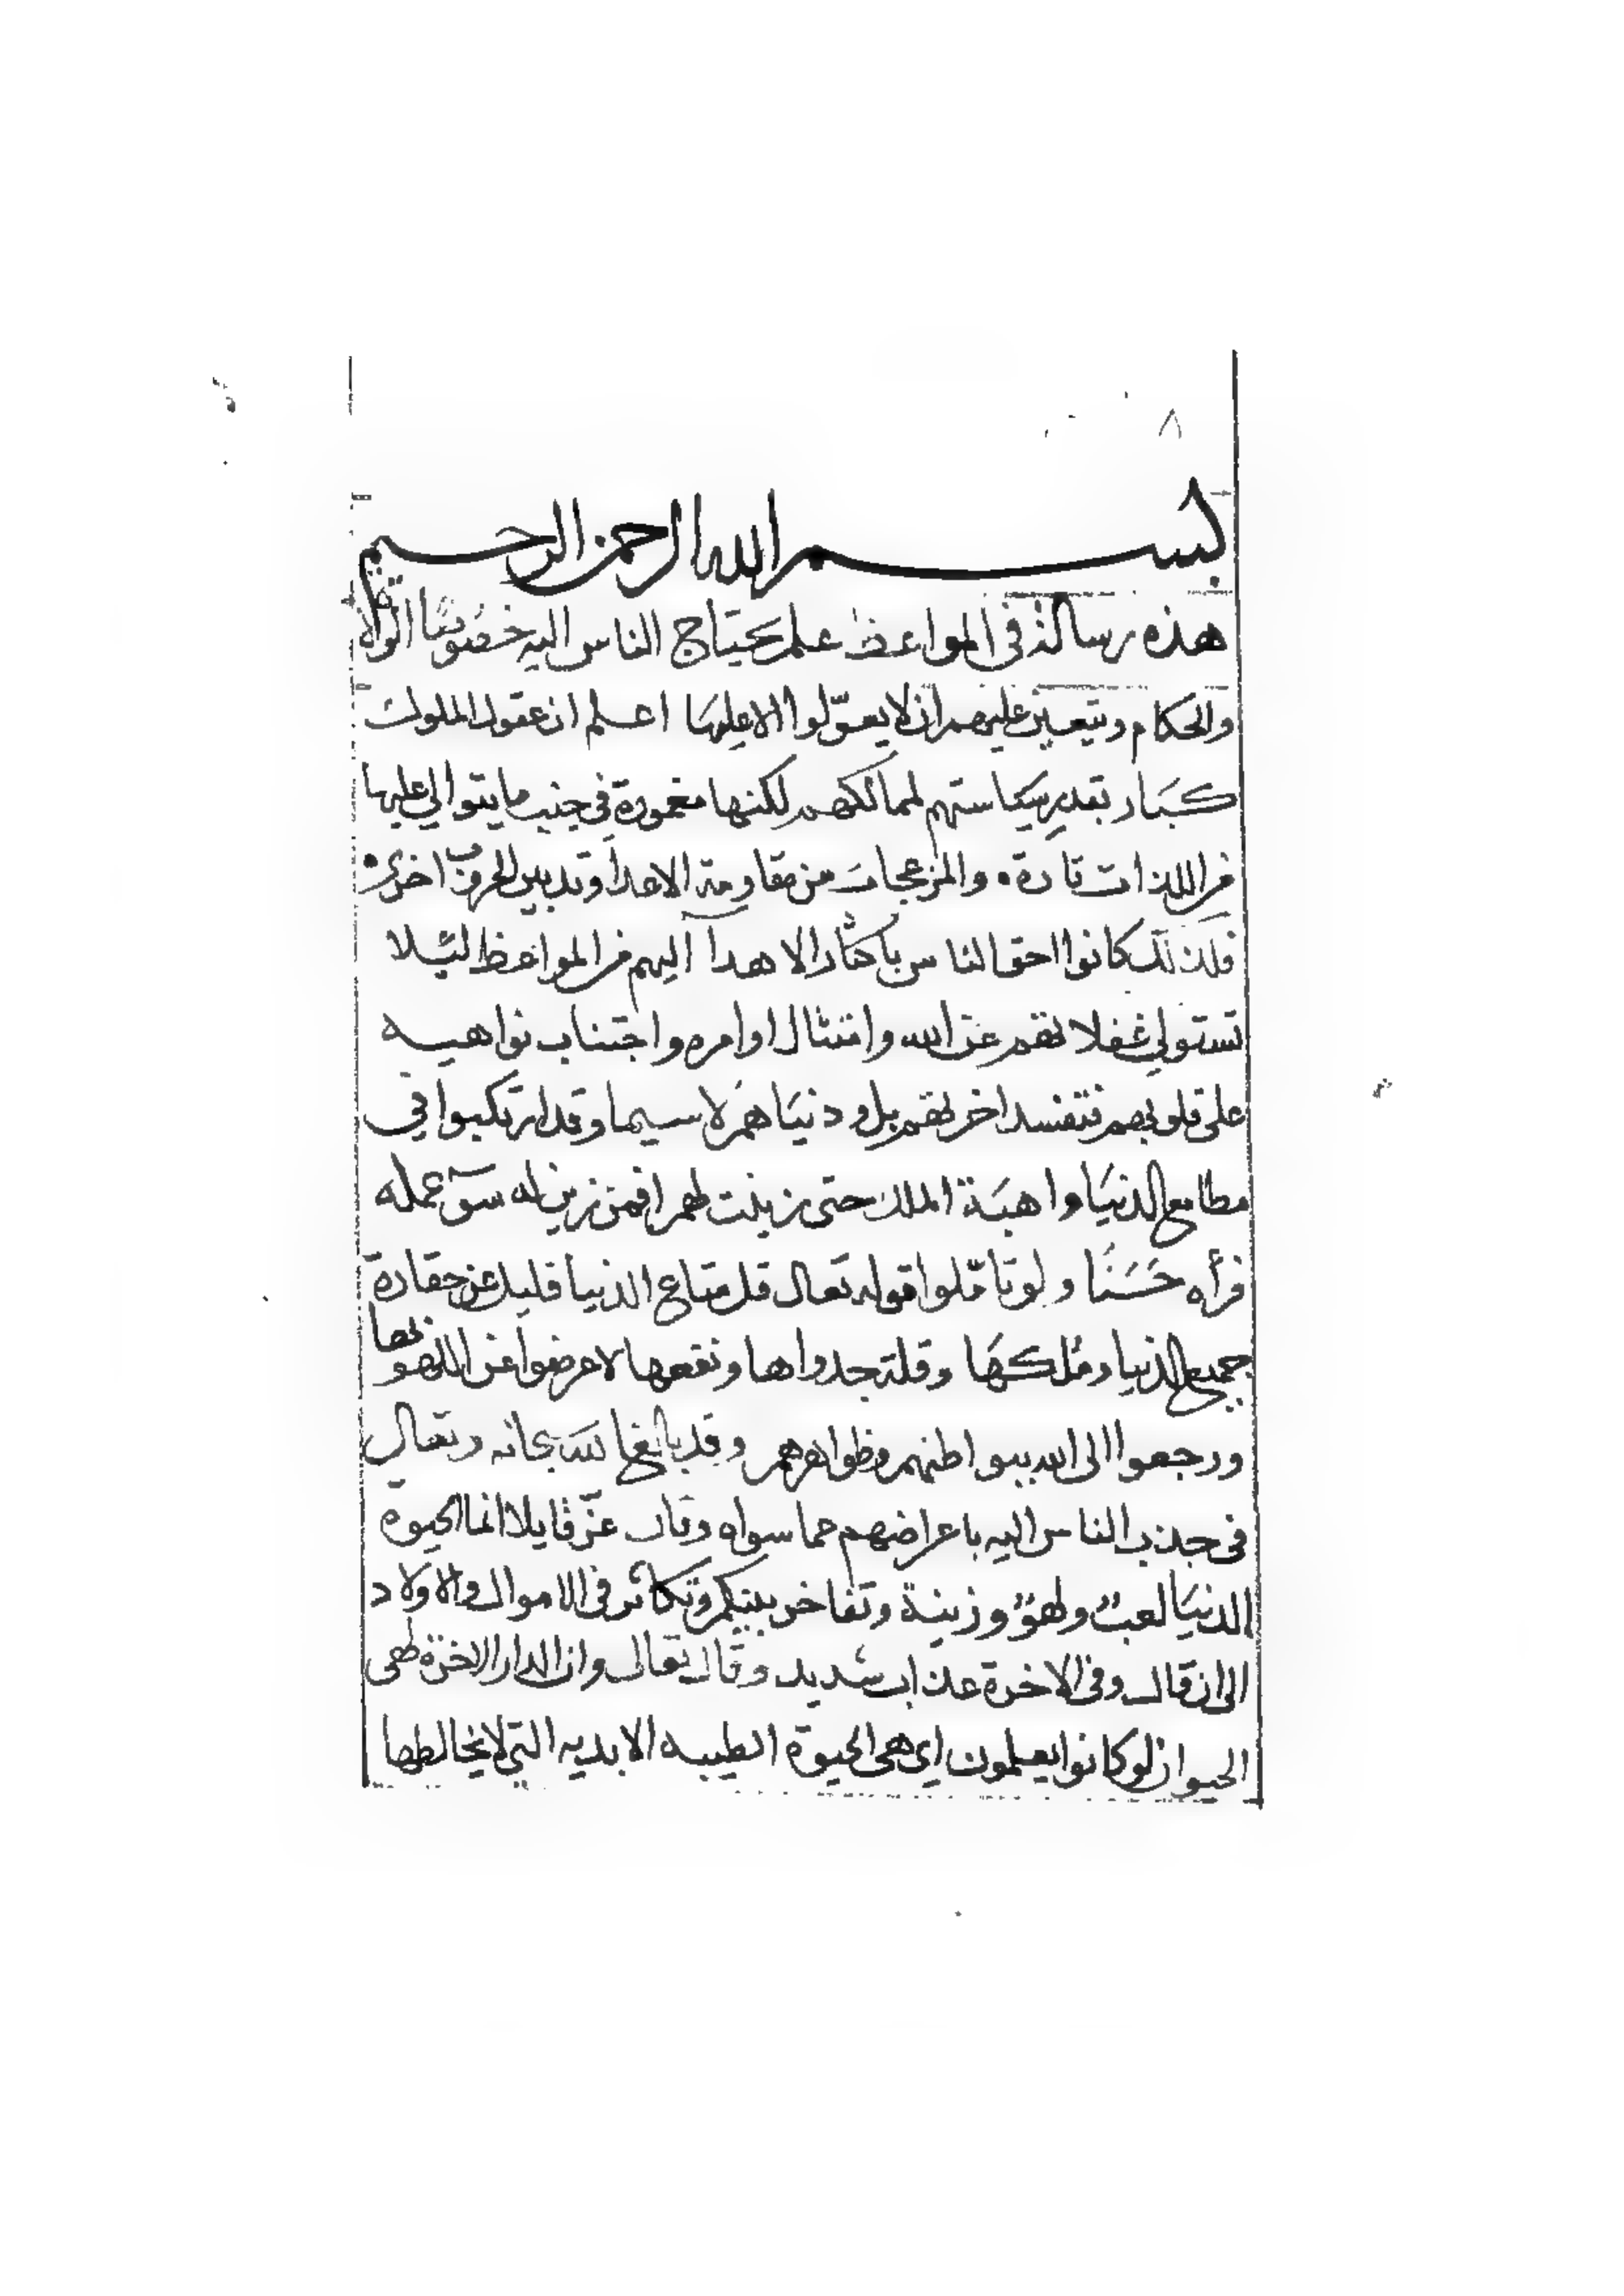 ٨
بسم الله الرحمن الرحيم
هذه رسالة في المواعظ علم يحتاج الناس اليه خصوصًا الولاة
والحكام ويتعين عليهم ان لا يعوّلوا الا عليها اعلم ان عقول الملوك
كبار بقدر سياستهم لممالكهم لكنها مغمورة في جنب ما يتوالي عليها
من اللذات تارة والمزعجات من مقاومة الاعدا وتدبير الحروب اخرى
فلذلك كانوا احق الناس باكثار الاهدآ اليهم من المواعظ لئلا
تستولي غفلاتهم عن الله وامتثال اوامره واجتناب نواهيه
على قلوبهم فتفسد اخرتهم بل ودنياهم لا سيما وقد ارتكبوا في
مطامع الدنيا واهبة الملك حتى زينت لهم افمن زين له سوٓ عمله
فرأه حَسَنًا ولو تامّلوا قوله تعالى قل متاع الدنيا قليل عن حقارة
جميع الدنيا ومُلكها وقلة جدواها ونفعها لاعرضوا عن اللهو بها
ورجعوا الى الله ببواطنهم وظواهرهم وقد بالغ سبحانه وتعالى
في جذب الناس اليه باعراضهم عما سواه وقال عزّ قايلا انما الحيوة
الدنيا لعبٌ ولهوٌ وزينة وتفاخر بينكم وتكاثر في الاموال والاولاد
الى ان قال وفى الاخرة عذاب شديد وقال تعالى وان الدار الاخرة لهى
الحيوان لو كانوا يعلمون اي هي الحيوة الطيبه الابديه التي لا يخالطها